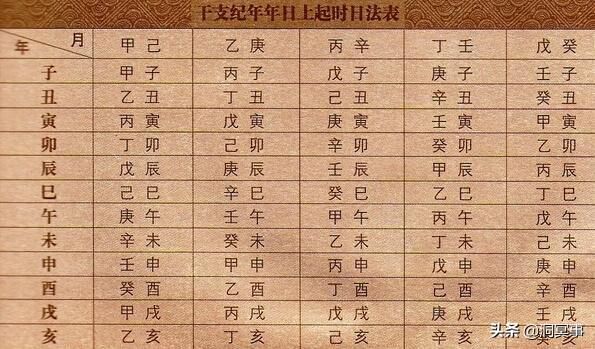 干支纪年年日上起时日法表
月 甲己 乙庚 丙辛 丁壬 戊癸
年
子 甲子 丙子 戊子 庚子 壬子
丑 乙丑 丁丑 己丑 辛丑 癸丑
寅 丙寅 戊寅 庚寅 壬寅 甲寅
卯 丁卯 己卯 辛卯 癸卯 乙卯
辰 戊辰 庚辰 壬辰 甲辰 丙辰
巳 己巳 辛巳 癸巳 乙巳 丁巳
午 庚午 壬午 甲午 丙午 戊午
未 辛未 癸未 乙未 丁未 己未
申 壬申 甲申 丙申 戊申 庚申
酉 癸酉 乙酉 丁酉 己酉 辛酉
戌 甲戌 丙戌 戊戌 庚戌 壬戌
亥 乙亥 丁亥 己亥 辛亥 癸亥
头条 @洞冥事